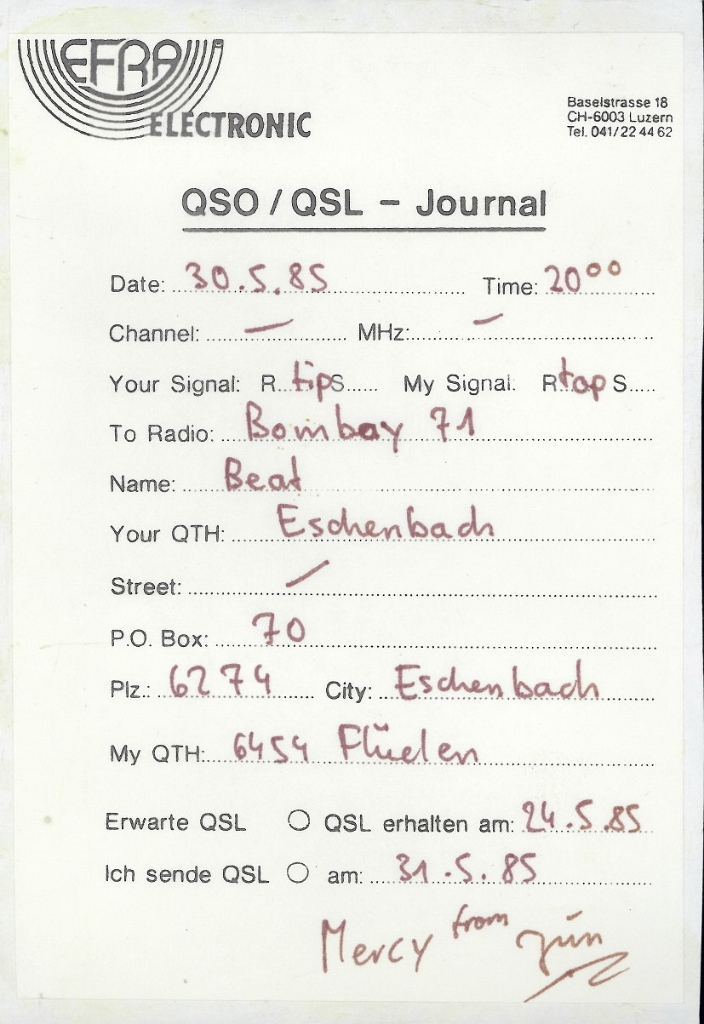 EFRA
ELECTRONIC
Baselstrasse 18
CH-6003 Luzern
Tel. 041/22 44 62
QSO / QSL - Journal
Date: 30.5.85 Time: 20°°
Channel: — MHz: —
Your Signal: R tip S My Signal: R top S
To Radio: Bombay 71
Name: Beat
Your QTH: Eschenbach
Street: —
P.O. Box: 70
Plz.: 6274 City: Eschenbach
My QTH: 6454 Flüelen
Erwarte QSL ○ QSL erhalten am: 24.5.85
Ich sende QSL ○ am: 31.5.85
Mercy from